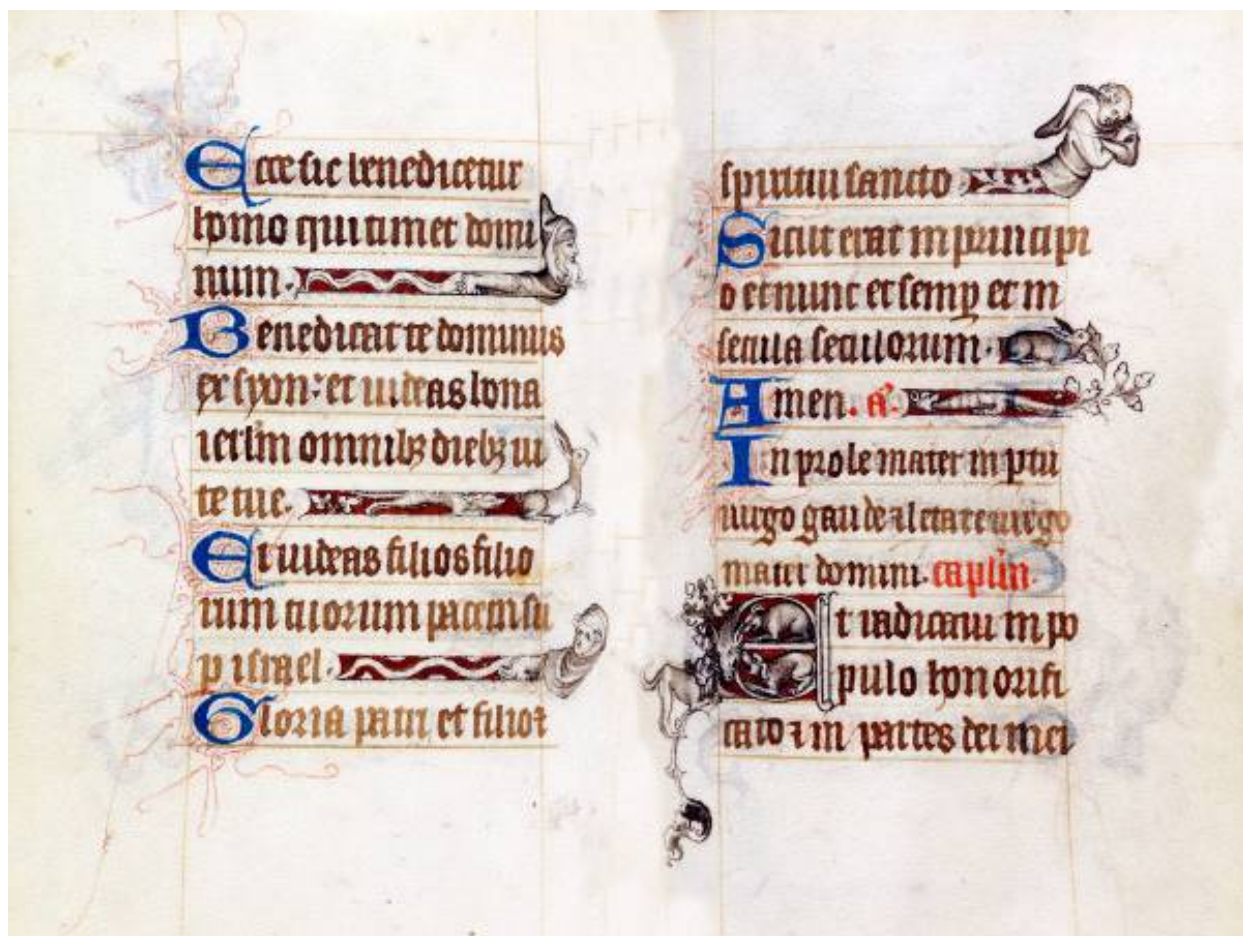 Ecce sic benedicetur
homo qui timet domi
num.
Benedicat te dominus
ex syon: et uideas bona
ierlm omnibz diebz ui
te tue.
Et uideas filios filio
rum tuorum pacem su
p israel.
Gloria patri et filio ⁊
spiritui sancto
Sicut erat in principi
o et nunc et semp et in
secula seculorum.
Amen. a.
In prole mater in ptu
uirgo gaude et letare uirgo
mater domini. caplm.
Et radicaui in po
pulo honorifi
cato ⁊ in partes dei mei